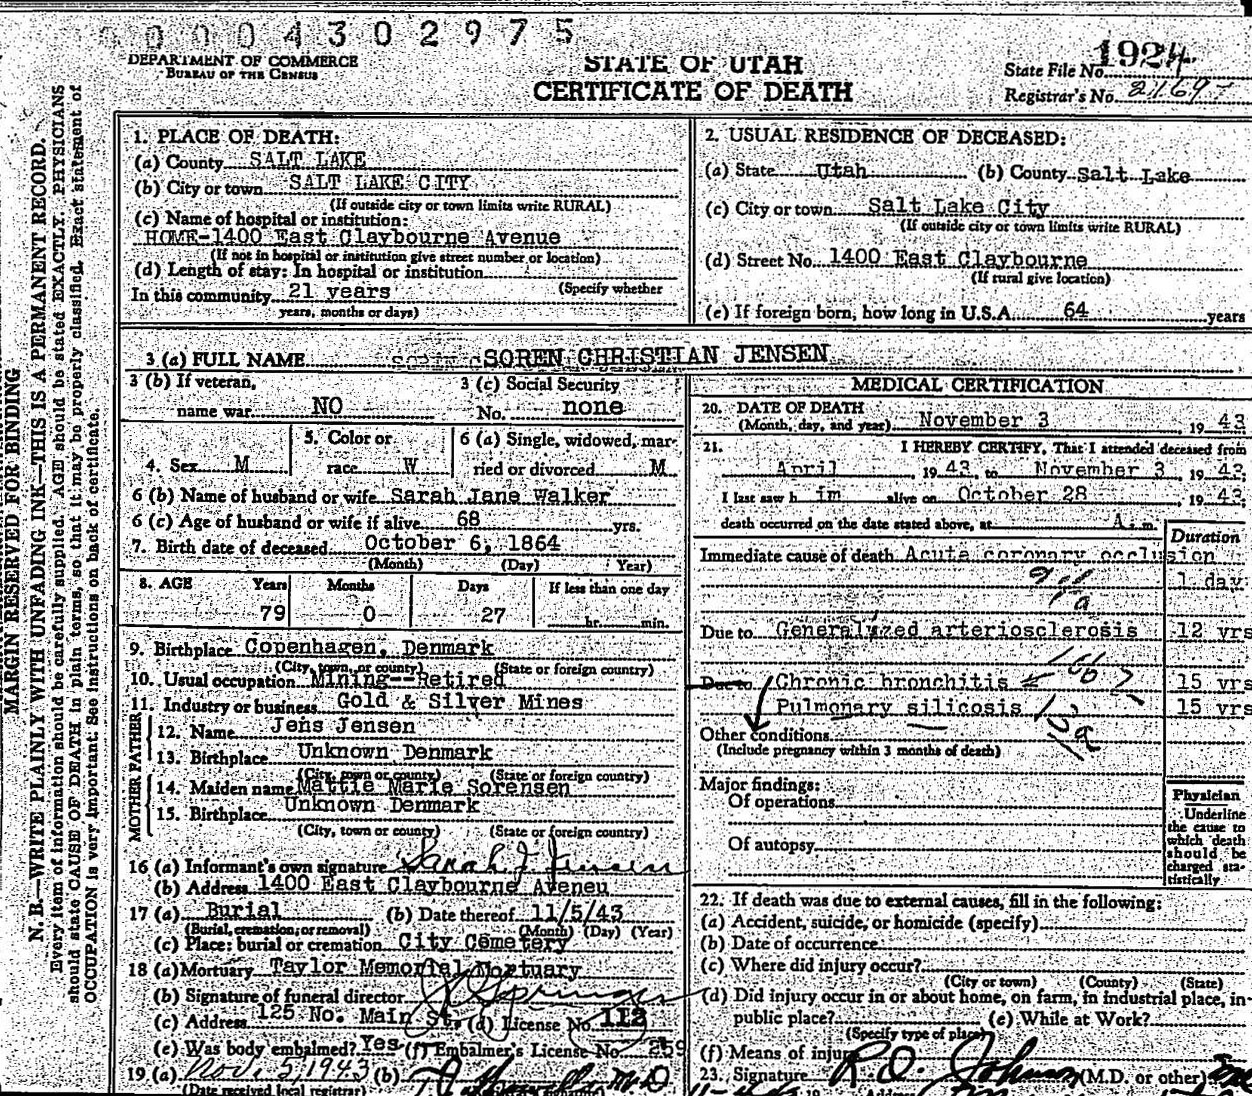 00004302975
DEPARTMENT OF COMMERCE
BUREAU OF THE CENSUS
STATE OF UTAH
CERTIFICATE OF DEATH
State File No. 1924
Registrar's No. 2169
MARGIN RESERVED FOR BINDING
N. B.—WRITE PLAINLY WITH UNFADING INK—THIS IS A PERMANENT RECORD.
Every item of information should be carefully supplied. AGE should be stated EXACTLY. PHYSICIANS
should state CAUSE OF DEATH in plain terms, so that it may be properly classified. Exact statement of
OCCUPATION is very important. See instructions on back of certificate.
1. PLACE OF DEATH:
(a) County SALT LAKE
(b) City or town SALT LAKE CITY
(If outside city or town limits write RURAL)
(c) Name of hospital or institution:
HOME-1400 East Claybourne Avenue
(If not in hospital or institution give street number or location)
(d) Length of stay: In hospital or institution
(Specify whether
In this community 21 years
years, months or days)
2. USUAL RESIDENCE OF DECEASED:
(a) State Utah (b) County Salt Lake
(c) City or town Salt Lake City
(If outside city or town limits write RURAL)
(d) Street No. 1400 East Claybourne
(If rural give location)
(e) If foreign born, how long in U.S.A. 64 years
3 (a) FULL NAME SOREN CHRISTIAN JENSEN
3 (b) If veteran, name war NO
3 (c) Social Security No. none
4. Sex M
5. Color or race W
6 (a) Single, widowed, married or divorced M
6 (b) Name of husband or wife Sarah Jane Walker
6 (c) Age of husband or wife if alive 68 yrs.
7. Birth date of deceased October 6, 1864
(Month) (Day) Year)
8. AGE Years Months Days If less than one day
79 0 27 hr. min.
9. Birthplace Copenhagen, Denmark
(City, town, or county) (State or foreign country)
10. Usual occupation Mining--Retired
11. Industry or business Gold & Silver Mines
FATHER
12. Name Jens Jensen
13. Birthplace Unknown Denmark
(City, town or county) (State or foreign country)
MOTHER
14. Maiden name Mattie Marie Sorensen
15. Birthplace Unknown Denmark
(City, town or county) (State or foreign country)
16 (a) Informant's own signature Sarah J Jensen
(b) Address 1400 East Claybourne Aveneu
17 (a) Burial (b) Date thereof 11/5/43
(Burial, cremation, or removal) (Month) (Day) (Year)
(c) Place: burial or cremation City Cemetery
18 (a) Mortuary Taylor Memorial Mortuary
(b) Signature of funeral director
(c) Address 125 No. Main St. (d) License No. 112
(e) Was body embalmed? Yes (f) Embalmer's License No. 259
19 (a) Nov. 5, 1943 (b) M.D
(Date received local registrar)
MEDICAL CERTIFICATION
20. DATE OF DEATH
(Month, day, and year) November 3, 19 43
21. I HEREBY CERTIFY, That I attended deceased from
April, 19 43, to November 3, 19 43;
I last saw h im alive on October 28, 19 43;
death occurred on the date stated above, at A. m.
Duration
Immediate cause of death Acute coronary occlusion
1 day
Due to Generalized arteriosclerosis 12 yrs
Due to Chronic bronchitis 15 yrs
Pulmonary silicosis 15 yrs
Other conditions
(Include pregnancy within 3 months of death)
Major findings:
Of operations
Of autopsy
Physician
Underline
the cause to
which death
should be
charged sta-
tistically
22. If death was due to external causes, fill in the following:
(a) Accident, suicide, or homicide (specify)
(b) Date of occurrence
(c) Where did injury occur?
(City or town) (County) (State)
(d) Did injury occur in or about home, on farm, in industrial place, in
public place? (e) While at Work?
(Specify type of place)
(f) Means of injury
23. Signature R.O. Johnson (M.D. or other)